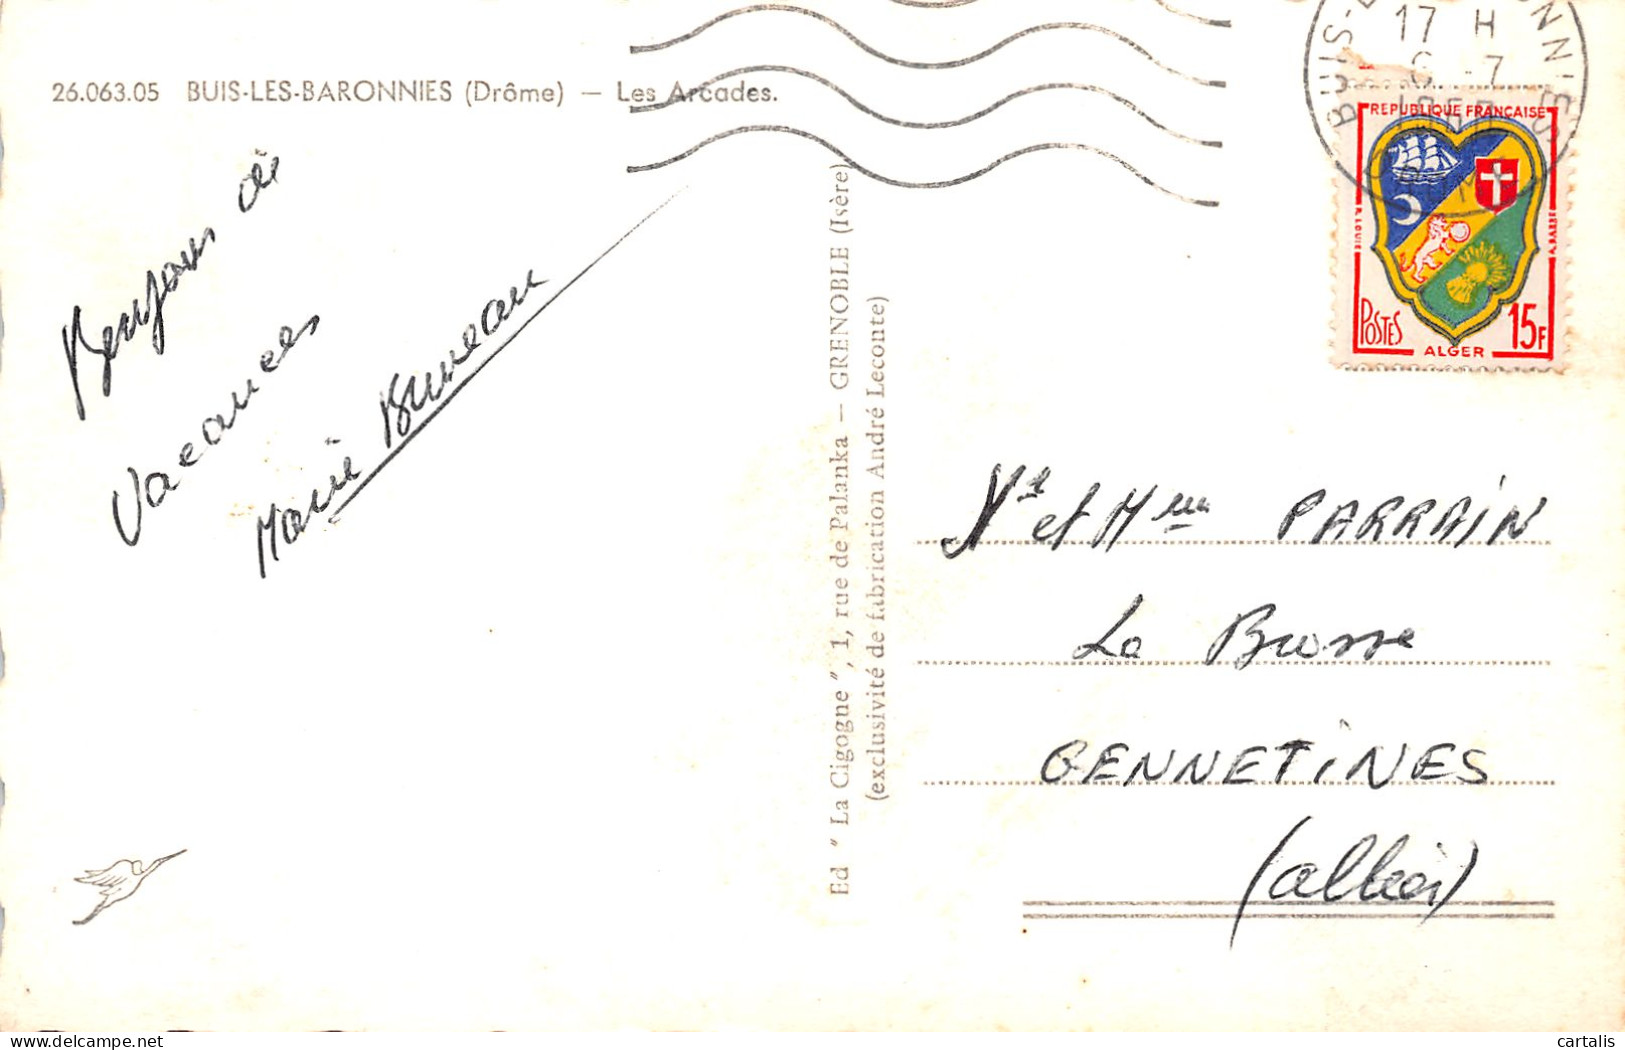 26.063.05 BUIS-LES-BARONNIES (Drôme) — Les Arcades.
Bonjour de
Vacances
Marie Bruneau
Ed " La Cigogne ", 1, rue de Palanka — GRENOBLE (Isère)
(exclusivité de fabrication André Leconte)
17 H
REPUBLIQUE FRANÇAISE
POSTES
ALGER
15F
et Mme PARRAIN
La Brosse
GENNETINES
(allier)
cartalis.delcampe.net